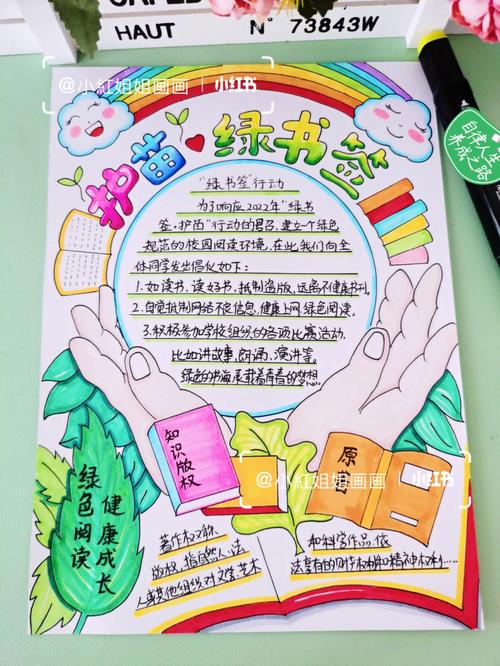 HAUT
N° 73843W
@小紅姐姐画画 | 小红书
自律人生
养成之路
护苗
绿书签
"绿书签"行动
为了响应2022年"绿书
签·护苗"行动的号召,建立一个绿色
规范的校园阅读环境,在此我们向全
体同学发出倡仪如下:
1.如读书,读好书,抵制盗版,远离不健康书刊。
2.自觉抵制网络不良信息,健康上网,绿色阅读。
3.积极参加学校组织的各项比赛活动,
比如讲故事,朗诵,演讲等。
绿色的书海承载着青春的梦想.
知识版权
原著
@小紅姐姐画画 | 小红书
绿色阅读
健康成长
著作权又称
版权,指自然人、法
人或其他组织对文学、艺术
和科学作品,依
法享有的财产权利和精神权利....